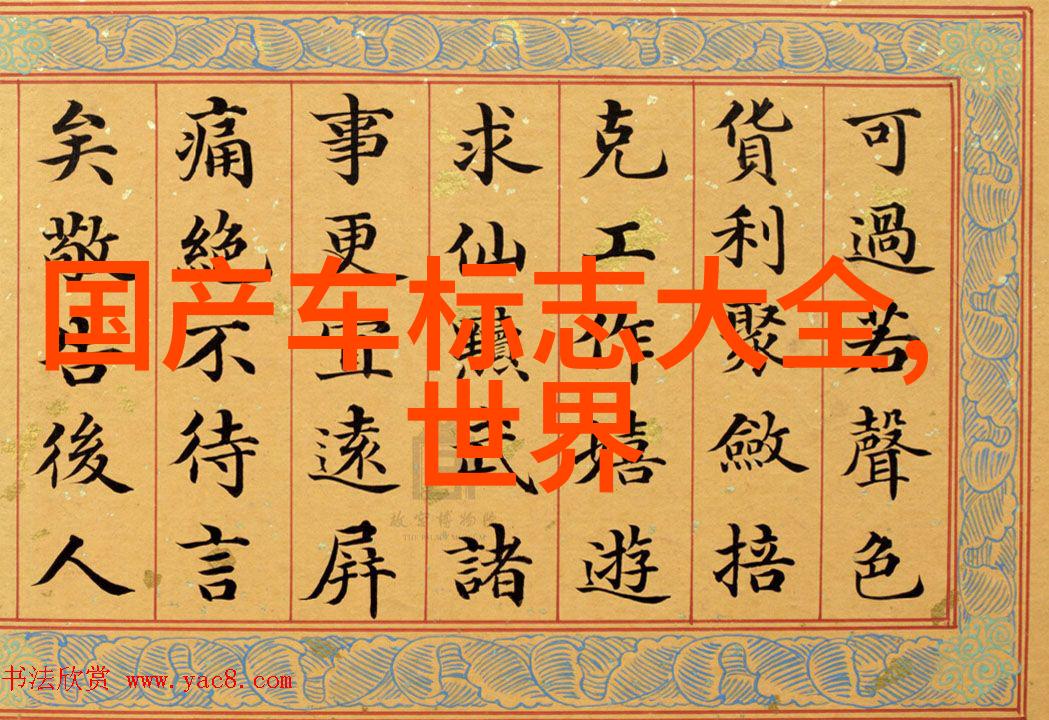 可過若聲色
貨利聚斂掊
克工作嬉遊
求仙黷武諸
事更宜遠屏
痛絕不待言
矣敬告後人
国产车标志大全,
世界
故宫博物院
书法欣赏 www.yac8.com